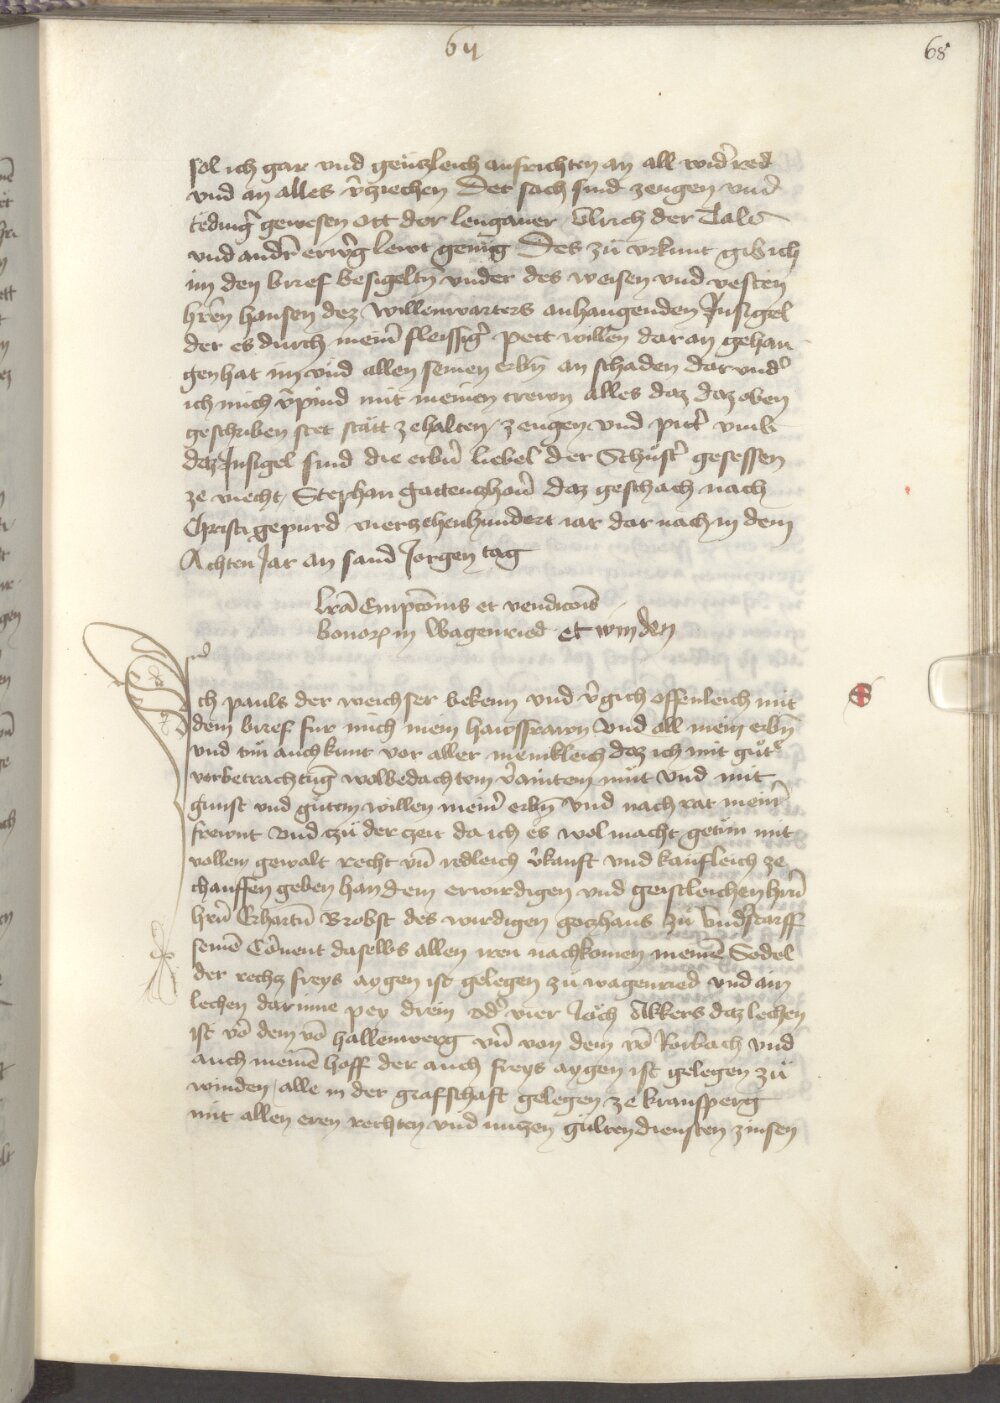 6ij
68
sol ich gar vnd gentzleich ausrichten an all wid'red
vnd an alles v'ziechen Der sach sind zeugen vnd
teding' gewesen Ott der lengauer Vlrich der
vnd and'r erw'g lewt genug Des zü vrkunt gib ich
im den brief besigelten vnder des weisen vnd vesten
h'ren hansen dez Willenwarters anhangenden Insigel
der es durch mein' fleissig' pett willen daran gehan
gen hat im vnd allen seinen erbn an schaden dar vnd'
ich mich v'pind mit meinen trewn alles daz daz oben
geschriben stet stätt zehalten / zeugen vnd pitt' vmb
daz Insigel sind die erb'n liebel der Schüst' gesessen
ze viecht / Stephan daz geschach nach
Christi gepurd vierzehenhundert iar dar nach in dem
Achten Jar an sand Jorgen tag
lr̃a Empc̃onis et vendic̃ois
bonor in Wagenried et winden
Ich pauls der weichser bekenn vnd v'gich offenleich mit
dem brief fur mich mein hawsfrawn vnd all mein erbn
vnd tün auch kunt vor aller menikleich daz ich mit güt'
vorbetrachtūg wolbedachtem v'aintem müt vnd mit
gunst vnd gütem willen mein' erbn vnd nach rat mein'
frewnt vnd czü der czeit da ich es wol macht getün mit
vollem gewalt recht vn̄ redleich v'kauft vnd kaufleich ze
chauffen geben han dem erwirdigen vnd geistleichen h'rn
h'rn Erhartn̄ Brobst des wirdigen gotzhaus zü vnd'starff
seinē Cōuent daselbs allen iren nachkomen meinē Sedel
der rechtz freys aygen ist gelegen zü wagenried vnd ain
lechen darinne pey drein od' vier Jöch Akkers daz lechen
ist vō dem vō hallenwerg vn̄ von dem vō Rorbach vnd
auch meinē hoff der auch freys aygen ist gelegen zü
winden / alle in der grafschaft gelegen ze kransperg
mit allen eren rechten vnd nutzen gülten diensten zinsen